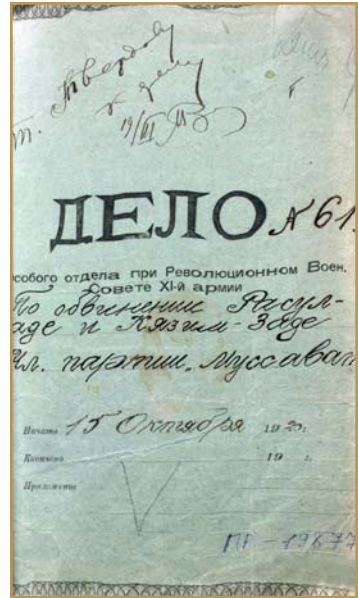 т. Твердову
к делу
19/VI
ДЕЛО № 61.
особого отдела при Революционном Воен.
Совете XI-й армии
По обвинению Расул-
заде и Кязим-Заде
Чл. партии "Муссават
Начато 15 Октября 1920 г.
Кончено 19 г.
Приложение
ПР-19677